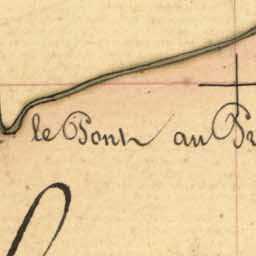 le Pont au Pr